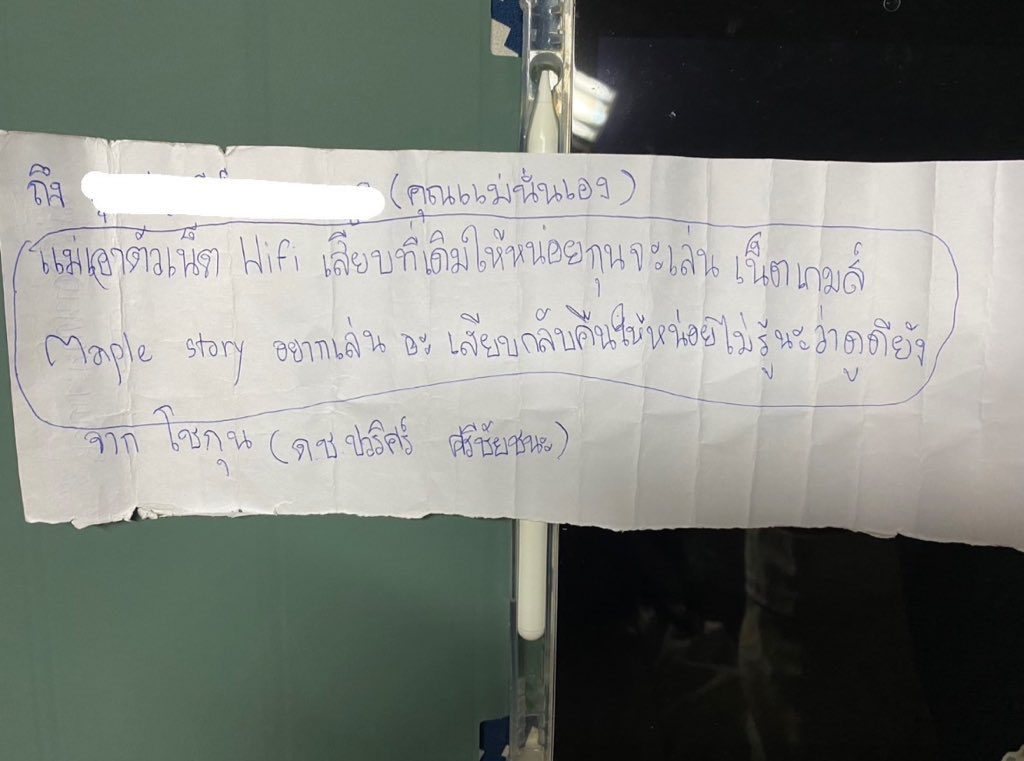 ถึง (คุณแม่นั่นเอง)
แม่เอาตัวเน็ต Wifi เสียบที่เดิมให้หน่อยกุนจะเล่น เน็ตเกมส์
Maple story อยากเล่น อะ เสียบกลับคืนให้หน่อยไม่รู้นะว่าดูดียัง
จาก โชกุน (ด.ช. ปวริศร์ ศรีชัยชนะ)